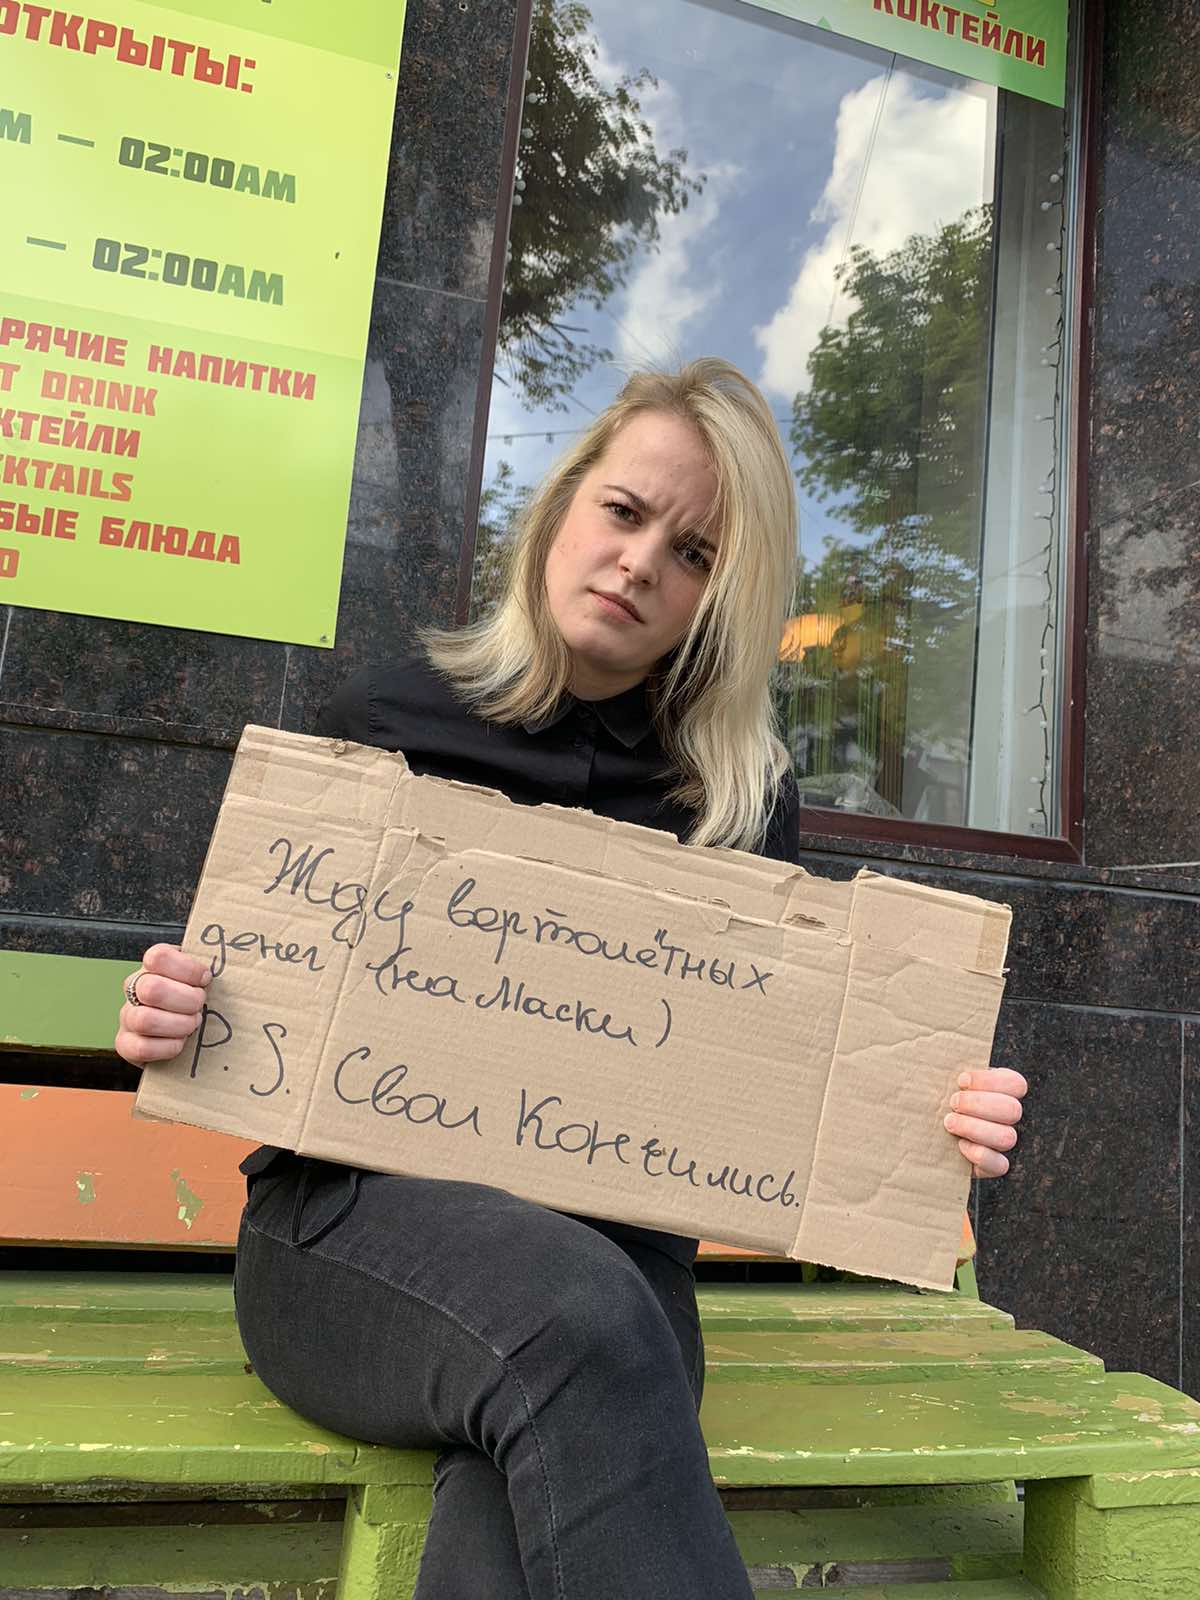 ОТКРЫТЫ:
М — 02:00AM
— 02:00AM
РЯЧИЕ НАПИТКИ
T DRINK
КТЕЙЛИ
CKTAILS
БЫЕ БЛЮДА
D
КОКТЕЙЛИ
Жду вертолётных
денег (на маски)
P.S. Свои Кончились.